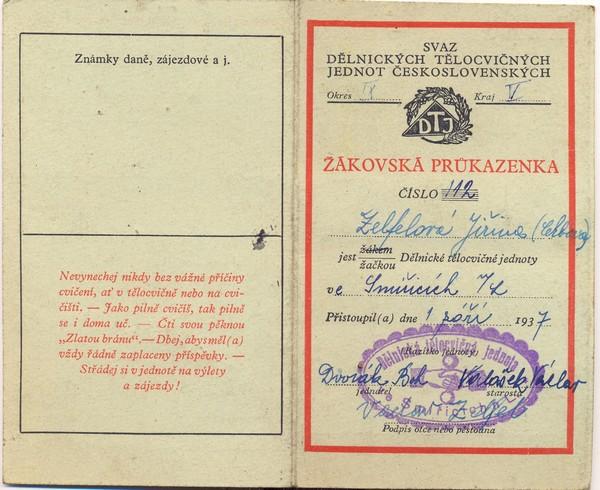 Známky daně, zájezdové a j.
Nevynechej nikdy bez vážné příčiny
cvičení, ať v tělocvičně nebo na cvi-
čišti. — Jako pilně cvičíš, tak pilně
se i doma uč. — Cti svou pěknou
„Zlatou bránu“.— Dbej, abys měl(a)
vždy řádně zaplaceny příspěvky. —
Střádej si v jednotě na výlety
a zájezdy!
SVAZ
DĚLNICKÝCH TĚLOCVIČNÝCH
JEDNOT ČESKOSLOVENSKÝCH
Okres IX Kraj V.
DTJ
ŽÁKOVSKÁ PRŮKAZENKA
ČÍSLO 112
Zelfelová Jiřina
jest žákem
žačkou Dělnické tělocvičné jednoty
v e Smiřicích
Přistoupil(a) dne 1 září 1937
(Razítko jednoty)
Dělnická tělocvičná jednota
Dvořák
jednatel starosta
Podpis otce nebo pěstouna